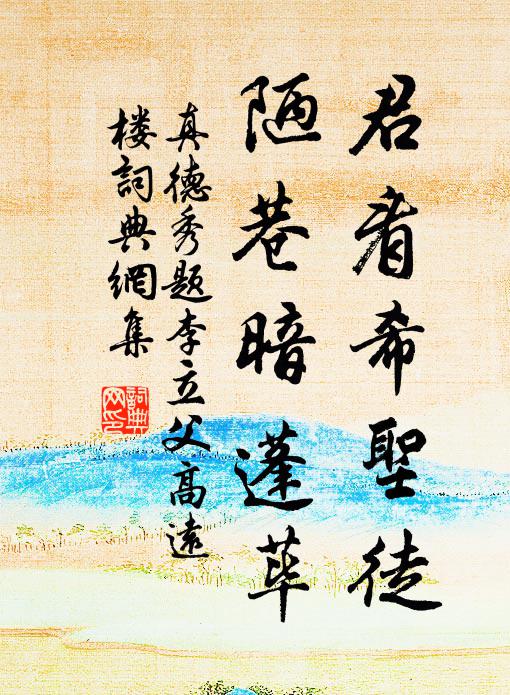 君看希聖徒
陋巷暗蓬荜
真德秀题李立父高遠
楼詞典網集
詞典
网印